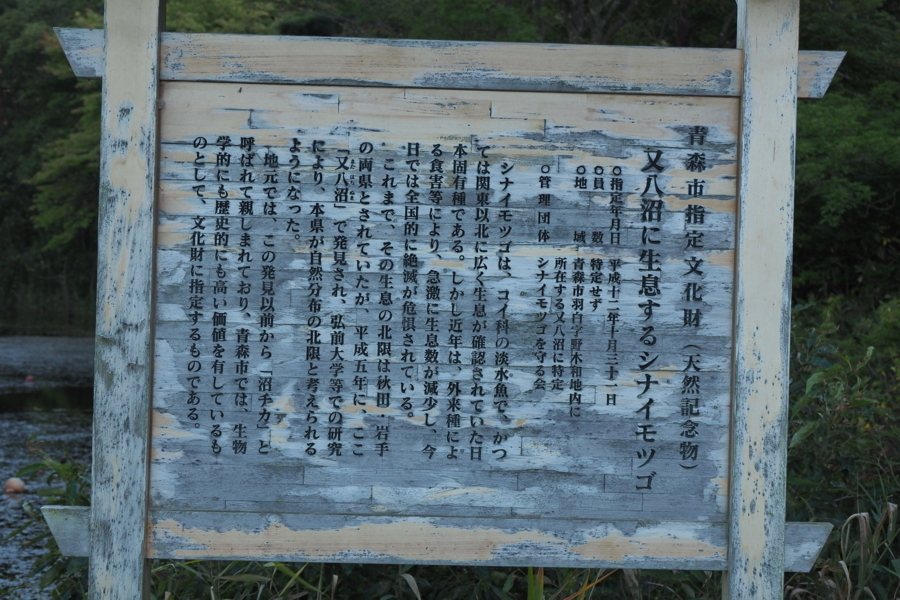 青森市指定文化財（天然記念物）
又八沼に生息するシナイモツゴ
○指定年月日 平成十二年十月三十一日
○員数 特定せず
○地域 青森市羽白字野木和地内に
所在する又八沼に特定
○管理団体 シナイモツゴを守る会
シナイモツゴは、コイ科の淡水魚で、かつ
ては関東以北に広く生息が確認されていた日
本固有種である。しかし近年は、外来種によ
る食害等により、急激に生息数が減少し、今
日では全国的に絶滅が危惧されている。
これまで、その生息の北限は秋田・岩手
の両県とされていたが、平成五年に、ここ
「又八沼」で発見され、弘前大学等での研究
により、本県が自然分布の北限と考えられる
ようになった。
地元では、この発見以前から「沼チカ」と
呼ばれて親しまれており、青森市では、生物
学的にも歴史的にも高い価値を有しているも
のとして、文化財に指定するものである。